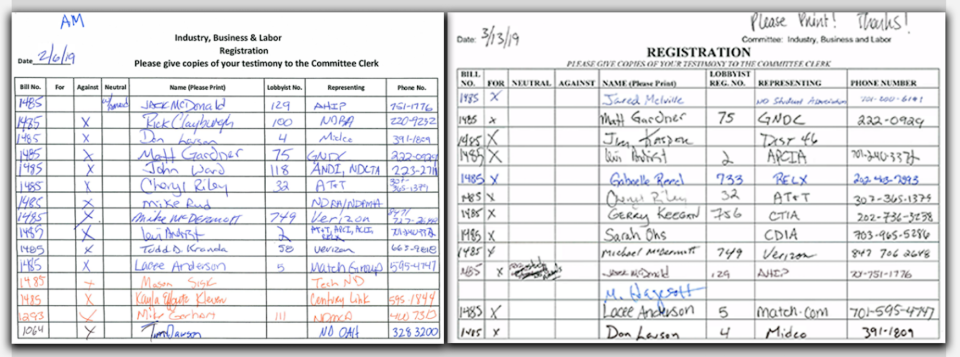 AM
Industry, Business & Labor
Registration
Date 2/6/19
Please give copies of your testimony to the Committee Clerk
Bill No. For Against Neutral Name (Please Print) Lobbyist No. Representing Phone No.
1485 Jack McDonald 129 AHIP 751-1776
1485 X Rick Clayburgh 100 NDBA 220-9232
1485 X Don Larson 4 Midco 391-1809
1485 X Matt Gardner 75 GNDC 222-0929
1485 X John Ward 118 ANDI, NDCTA
1485 X Cheryl Riley 32 AT&T 365-1379
1485 X Mike Rud NDRA/NDPMA
1485 X Mike McDermott 749 Verizon
1485 X Levi Andrist 2
1485 X Todd D. Kranda 58 Verizon 663-9818
1485 X Lacee Anderson 5 Match Group 595-4747
1485 X Mason Sisk Tech ND
1485 X Kayla Kleven Century Link 595 1844
1293 X Mike Gerhart 111 NDMCA 400 7310
1064 X Tim Dawson ND OAH 328 3200
Please Print! Thanks!
Date: 3/13/19
Committee: Industry, Business and Labor
REGISTRATION
PLEASE GIVE COPIES OF YOUR TESTIMONY TO THE COMMITTEE CLERK
BILL NO. FOR NEUTRAL AGAINST NAME (Please Print) LOBBYIST REG. NO. REPRESENTING PHONE NUMBER
1485 X Jared Melville ND Student Association
1485 X Matt Gardner 75 GNDC 222-0929
1485 X Jim Kasper Dist 46
1485 X Levi Andrist 2 APCIA 701-240-3372
1485 X Gabrielle 733 RELX
1485 X Cheryl Riley 32 AT&T 307-365-1379
1485 X Gerry Keegan 756 CTIA 202-736-3238
1485 X Sarah Ohs CDIA 703-965-5286
1485 X Michael McDermott 749 Verizon 847 706 2648
1485 X Jack McDonald 129 AHIP 701-751-1776
M. Haycott
1485 X Lacee Anderson 5 match.com 701-595-4747
1485 X Don Larson 4 Midco 391-1809